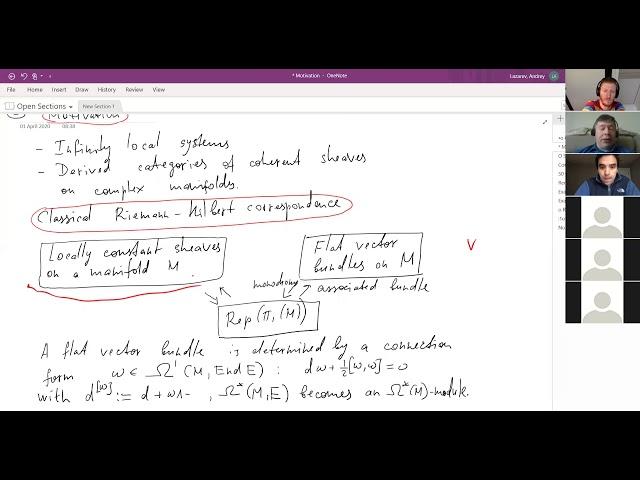 * Motivation - OneNote
Lazarev, Andrey
LA
File Home Insert Draw History Review View Help
Open Sections
New Section 1
Motivation
01 April 2020 08:38
- Infinity local systems
- Derived categories of coherent sheaves
on complex manifolds.
Classical Riemann-Hilbert correspondence
Locally constant sheaves
on a manifold M.
Flat vector
bundles on M
V
monodromy
associated bundle
Rep(π₁(M))
A flat vector bundle is determined by a connection
form ω ∈ Ω¹(M, End E) : dω + ½[ω,ω] = 0
with d^[ω] := d + ω∧- , Ω*(M,E) becomes an Ω*(M)-module.